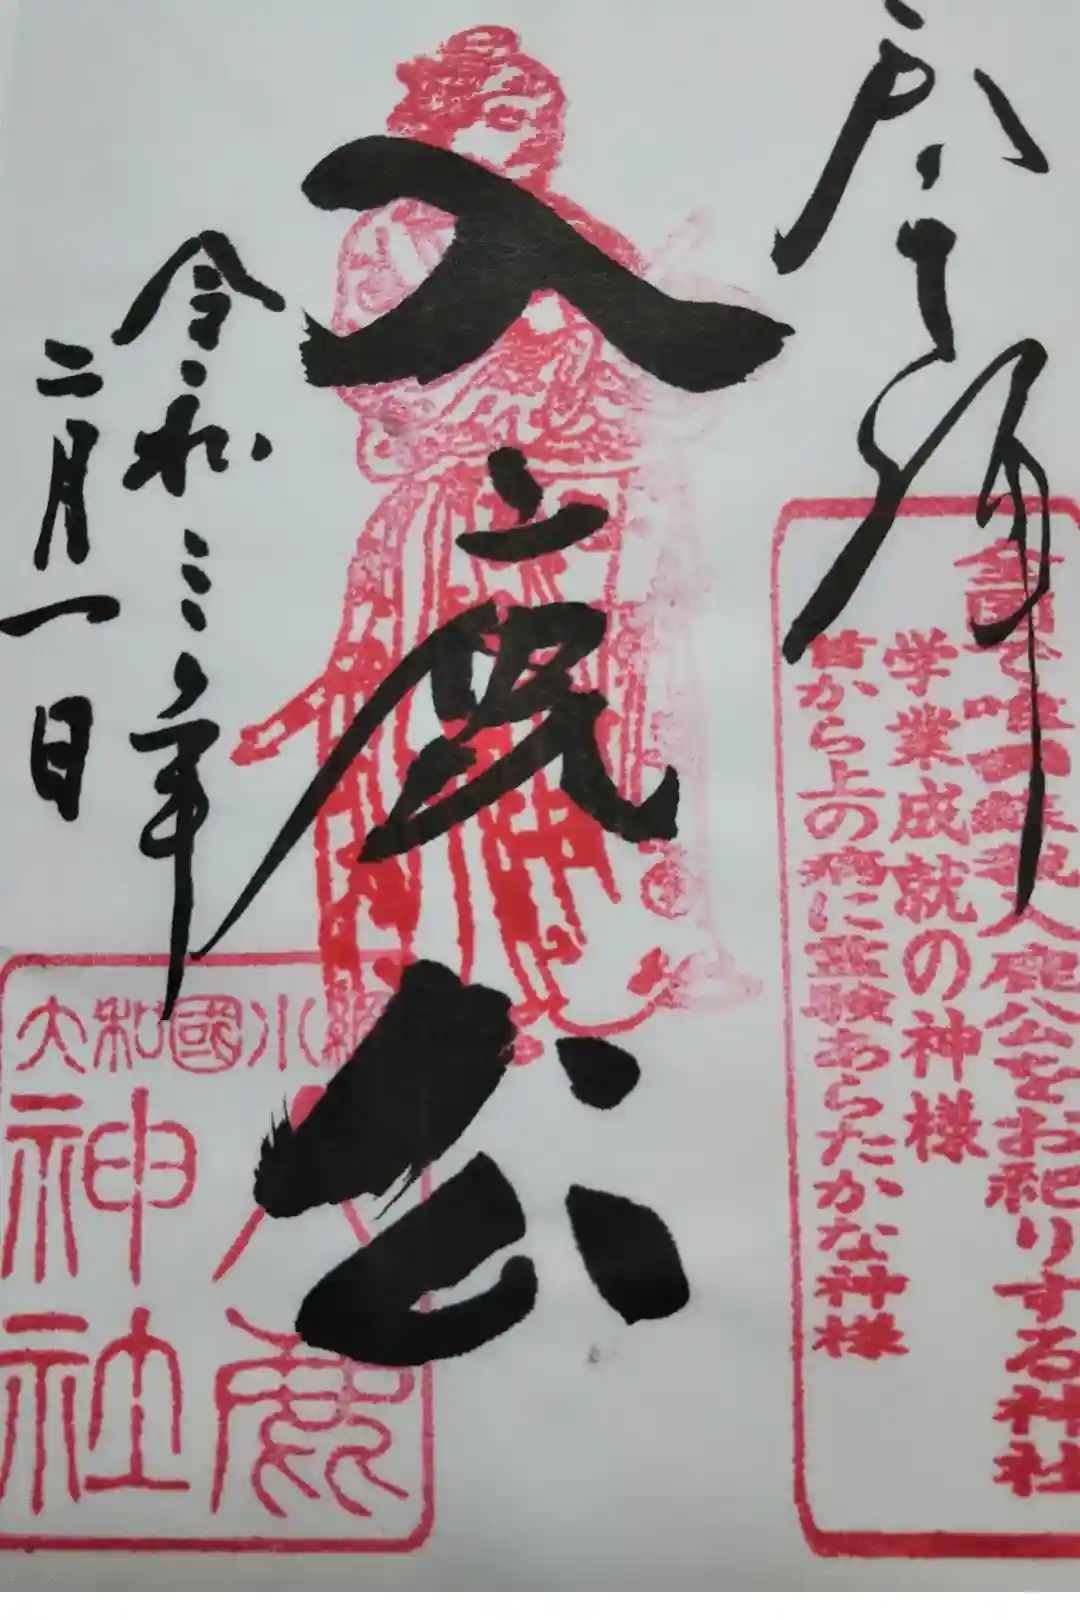 奉拝
全国で唯一蘇我入鹿公をお祀りする神社
学業成就の神様
首から上の病に霊験あらたかな神様
入鹿公
令和三年
二月一日
大和國小綱
入鹿
神社